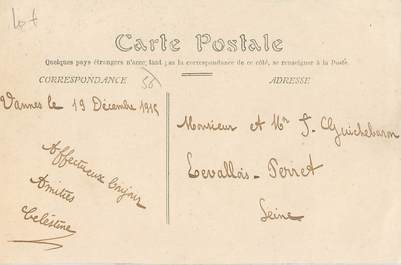 Lot
Carte Postale
Quelques pays étrangers n'acceptant pas la correspondance de ce côté, se renseigner à la Poste.
CORRESPONDANCE
56
ADRESSE
Vannes le 19 Décembre 1915
Affectueux bonjour
Amitiés
Céléstine
Monsieur et Mr J. Guichebaron
Levallois-Perret
Seine